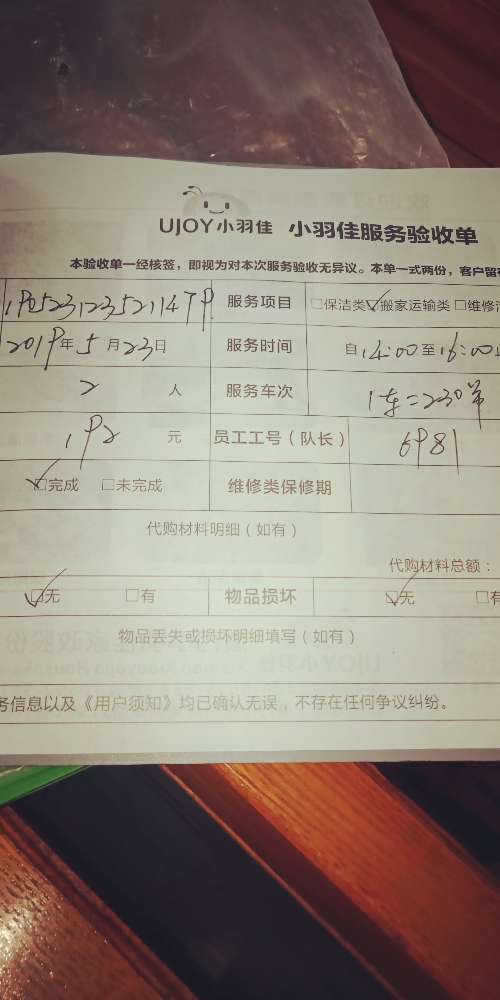 UJOY小羽佳 小羽佳服务验收单
本验收单一经核签，即视为对本次服务验收无异议。本单一式两份，客户留存
服务项目 □保洁类 ☑搬家运输类 □维修
2019年5月23日 服务时间 自14:00至16:00
2人 服务车次 1车=230单
192元 员工工号（队长） 6981
☑完成 □未完成 维修类保修期
代购材料明细（如有）
代购材料总额：
☑无 □有 物品损坏 ☑无 □有
物品丢失或损坏明细填写（如有）
务信息以及《用户须知》均已确认无误，不存在任何争议纠纷。